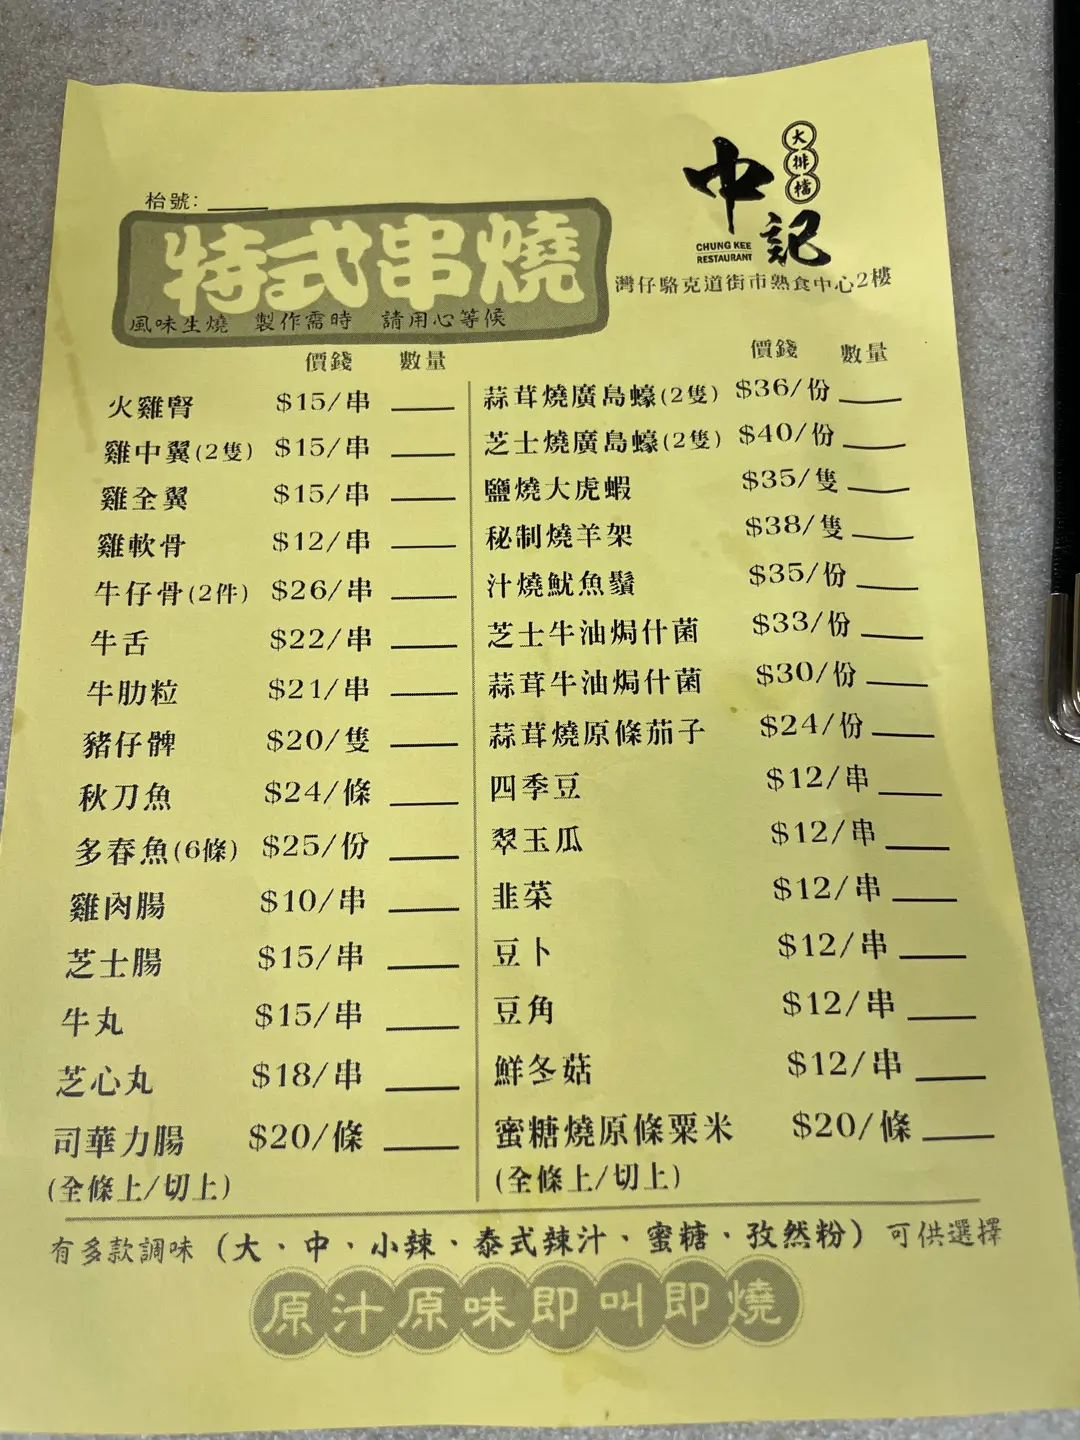 枱號：
大排檔
中記
CHUNG KEE
RESTAURANT
灣仔駱克道街市熟食中心2樓
特式串燒
風味生燒 製作需時 請用心等候
價錢 數量
火雞腎 $15/串
雞中翼(2隻) $15/串
雞全翼 $15/串
雞軟骨 $12/串
牛仔骨(2件) $26/串
牛舌 $22/串
牛肋粒 $21/串
豬仔髀 $20/隻
秋刀魚 $24/條
多春魚(6條) $25/份
雞肉腸 $10/串
芝士腸 $15/串
牛丸 $15/串
芝心丸 $18/串
司華力腸 $20/條
(全條上/切上)
價錢 數量
蒜茸燒廣島蠔(2隻) $36/份
芝士燒廣島蠔(2隻) $40/份
鹽燒大虎蝦 $35/隻
秘制燒羊架 $38/隻
汁燒魷魚鬚 $35/份
芝士牛油焗什菌 $33/份
蒜茸牛油焗什菌 $30/份
蒜茸燒原條茄子 $24/份
四季豆 $12/串
翠玉瓜 $12/串
韭菜 $12/串
豆卜 $12/串
豆角 $12/串
鮮冬菇 $12/串
蜜糖燒原條粟米 $20/條
(全條上/切上)
有多款調味（大、中、小辣、泰式辣汁、蜜糖、孜然粉）可供選擇
原汁原味即叫即燒